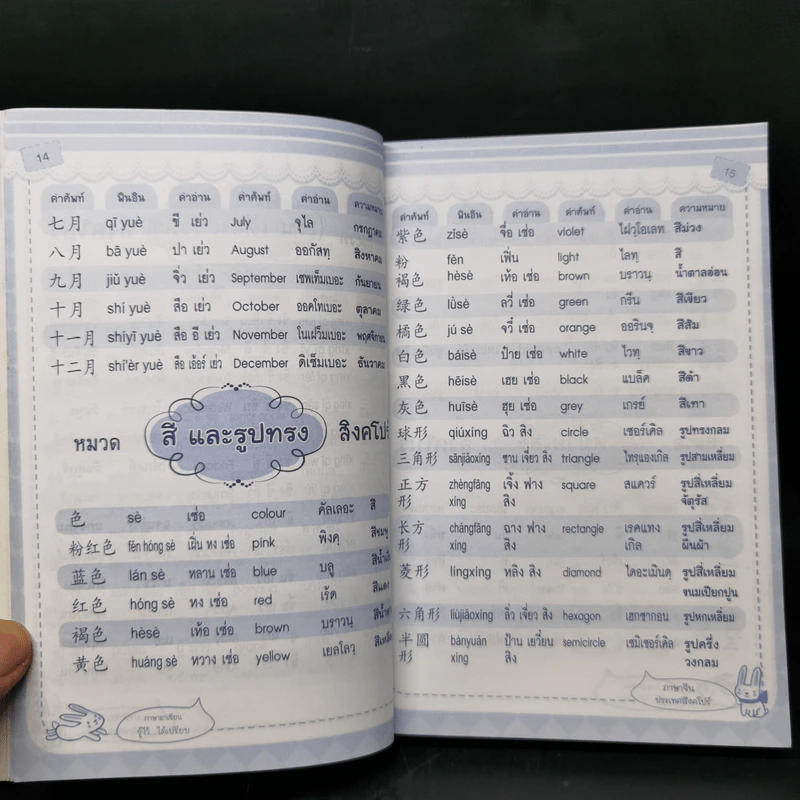 14
คำศัพท์ พินอิน คำอ่าน คำศัพท์ คำอ่าน ความหมาย
七月 qī yuè ชี เย่ว July จุไล กรกฎาคม
八月 bā yuè ปา เย่ว August ออกัสทฺ สิงหาคม
九月 jiǔ yuè จิ่ว เย่ว September เซพเท็มเบอะ กันยายน
十月 shí yuè สือ เย่ว October ออคโทเบอะ ตุลาคม
十一月 shíyī yuè สือ อี เย่ว November โนเฝ็วมเบอะ พฤศจิกายน
十二月 shí'èr yuè สือ เอ้อร์ เย่ว December ดิเซ็มเบอะ ธันวาคม
หมวด สี และรูปทรง สิงคโปร์
色 sè เซ่อ colour คัลเลอะ สี
粉红色 fěn hóng sè เฝิ่น หง เซ่อ pink พิงคฺ สีชมพู
蓝色 lán sè หลาน เซ่อ blue บลู สีน้ำเงิน
红色 hóng sè หง เซ่อ red เร็ด สีแดง
褐色 hèsè เห้อ เซ่อ brown บราวนฺ
黄色 huáng sè หวาง เซ่อ yellow เยลโลวฺ สีเหลือง
ภาษาอาเซียน
รู้ไว้...ได้เปรียบ
15
คำศัพท์ พินอิน คำอ่าน คำศัพท์ คำอ่าน ความหมาย
紫色 zǐsè จื่อ เซ่อ violet ไฝวฺโอเลท สีม่วง
粉 fěn เฟิ่น light ไลทฺ สี
褐色 hèsè เห้อ เซ่อ brown บราวนฺ น้ำตาลอ่อน
绿色 lǜsè ลวี่ เซ่อ green กรีน สีเขียว
橘色 jú sè จวี๋ เซ่อ orange ออรินจฺ สีส้ม
白色 báisè ป๋าย เซ่อ white ไวทฺ สีขาว
黑色 hēisè เฮย เซ่อ black แบล็ค สีดำ
灰色 huīsè ฮุย เซ่อ grey เกรย์ สีเทา
球形 qiúxíng ฉิว สิง circle เซอร์เคิล รูปทรงกลม
三角形 sānjiǎoxíng ซาน เจี่ยว สิง triangle ไทรฺแองเกิล รูปสามเหลี่ยม
正方 zhèngfāng เจิ้ง ฟาง square สแควร์ รูปสี่เหลี่ยม
形 xíng สิง จัตุรัส
长方 chángfāng ฉาง ฟาง rectangle เรคแทง รูปสี่เหลี่ยม
形 xíng สิง เกิล ผืนผ้า
菱形 língxíng หลิง สิง diamond ไดอะเมินดฺ รูปสี่เหลี่ยม
ขนมเปียกปูน
六角形 liùjiǎoxíng ลิ่ว เจี่ยว สิง hexagon เฮกซากอน รูปหกเหลี่ยม
半圆 bànyuán ป้าน เยวี๋ยน semicircle เซมิเซอร์เคิล รูปครึ่ง
形 xíng สิง วงกลม
ภาษาจีน
ประเทศสิงคโปร์